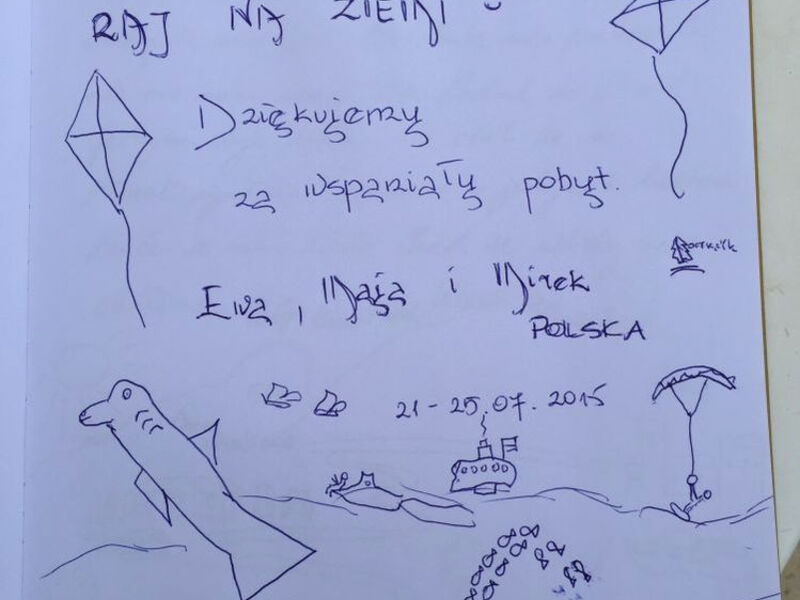 RAJ NA ZIEMI
Dziękujemy
za wspaniały pobyt.
Ewa, Maja i Mirek
POLSKA
21-25.07.2015